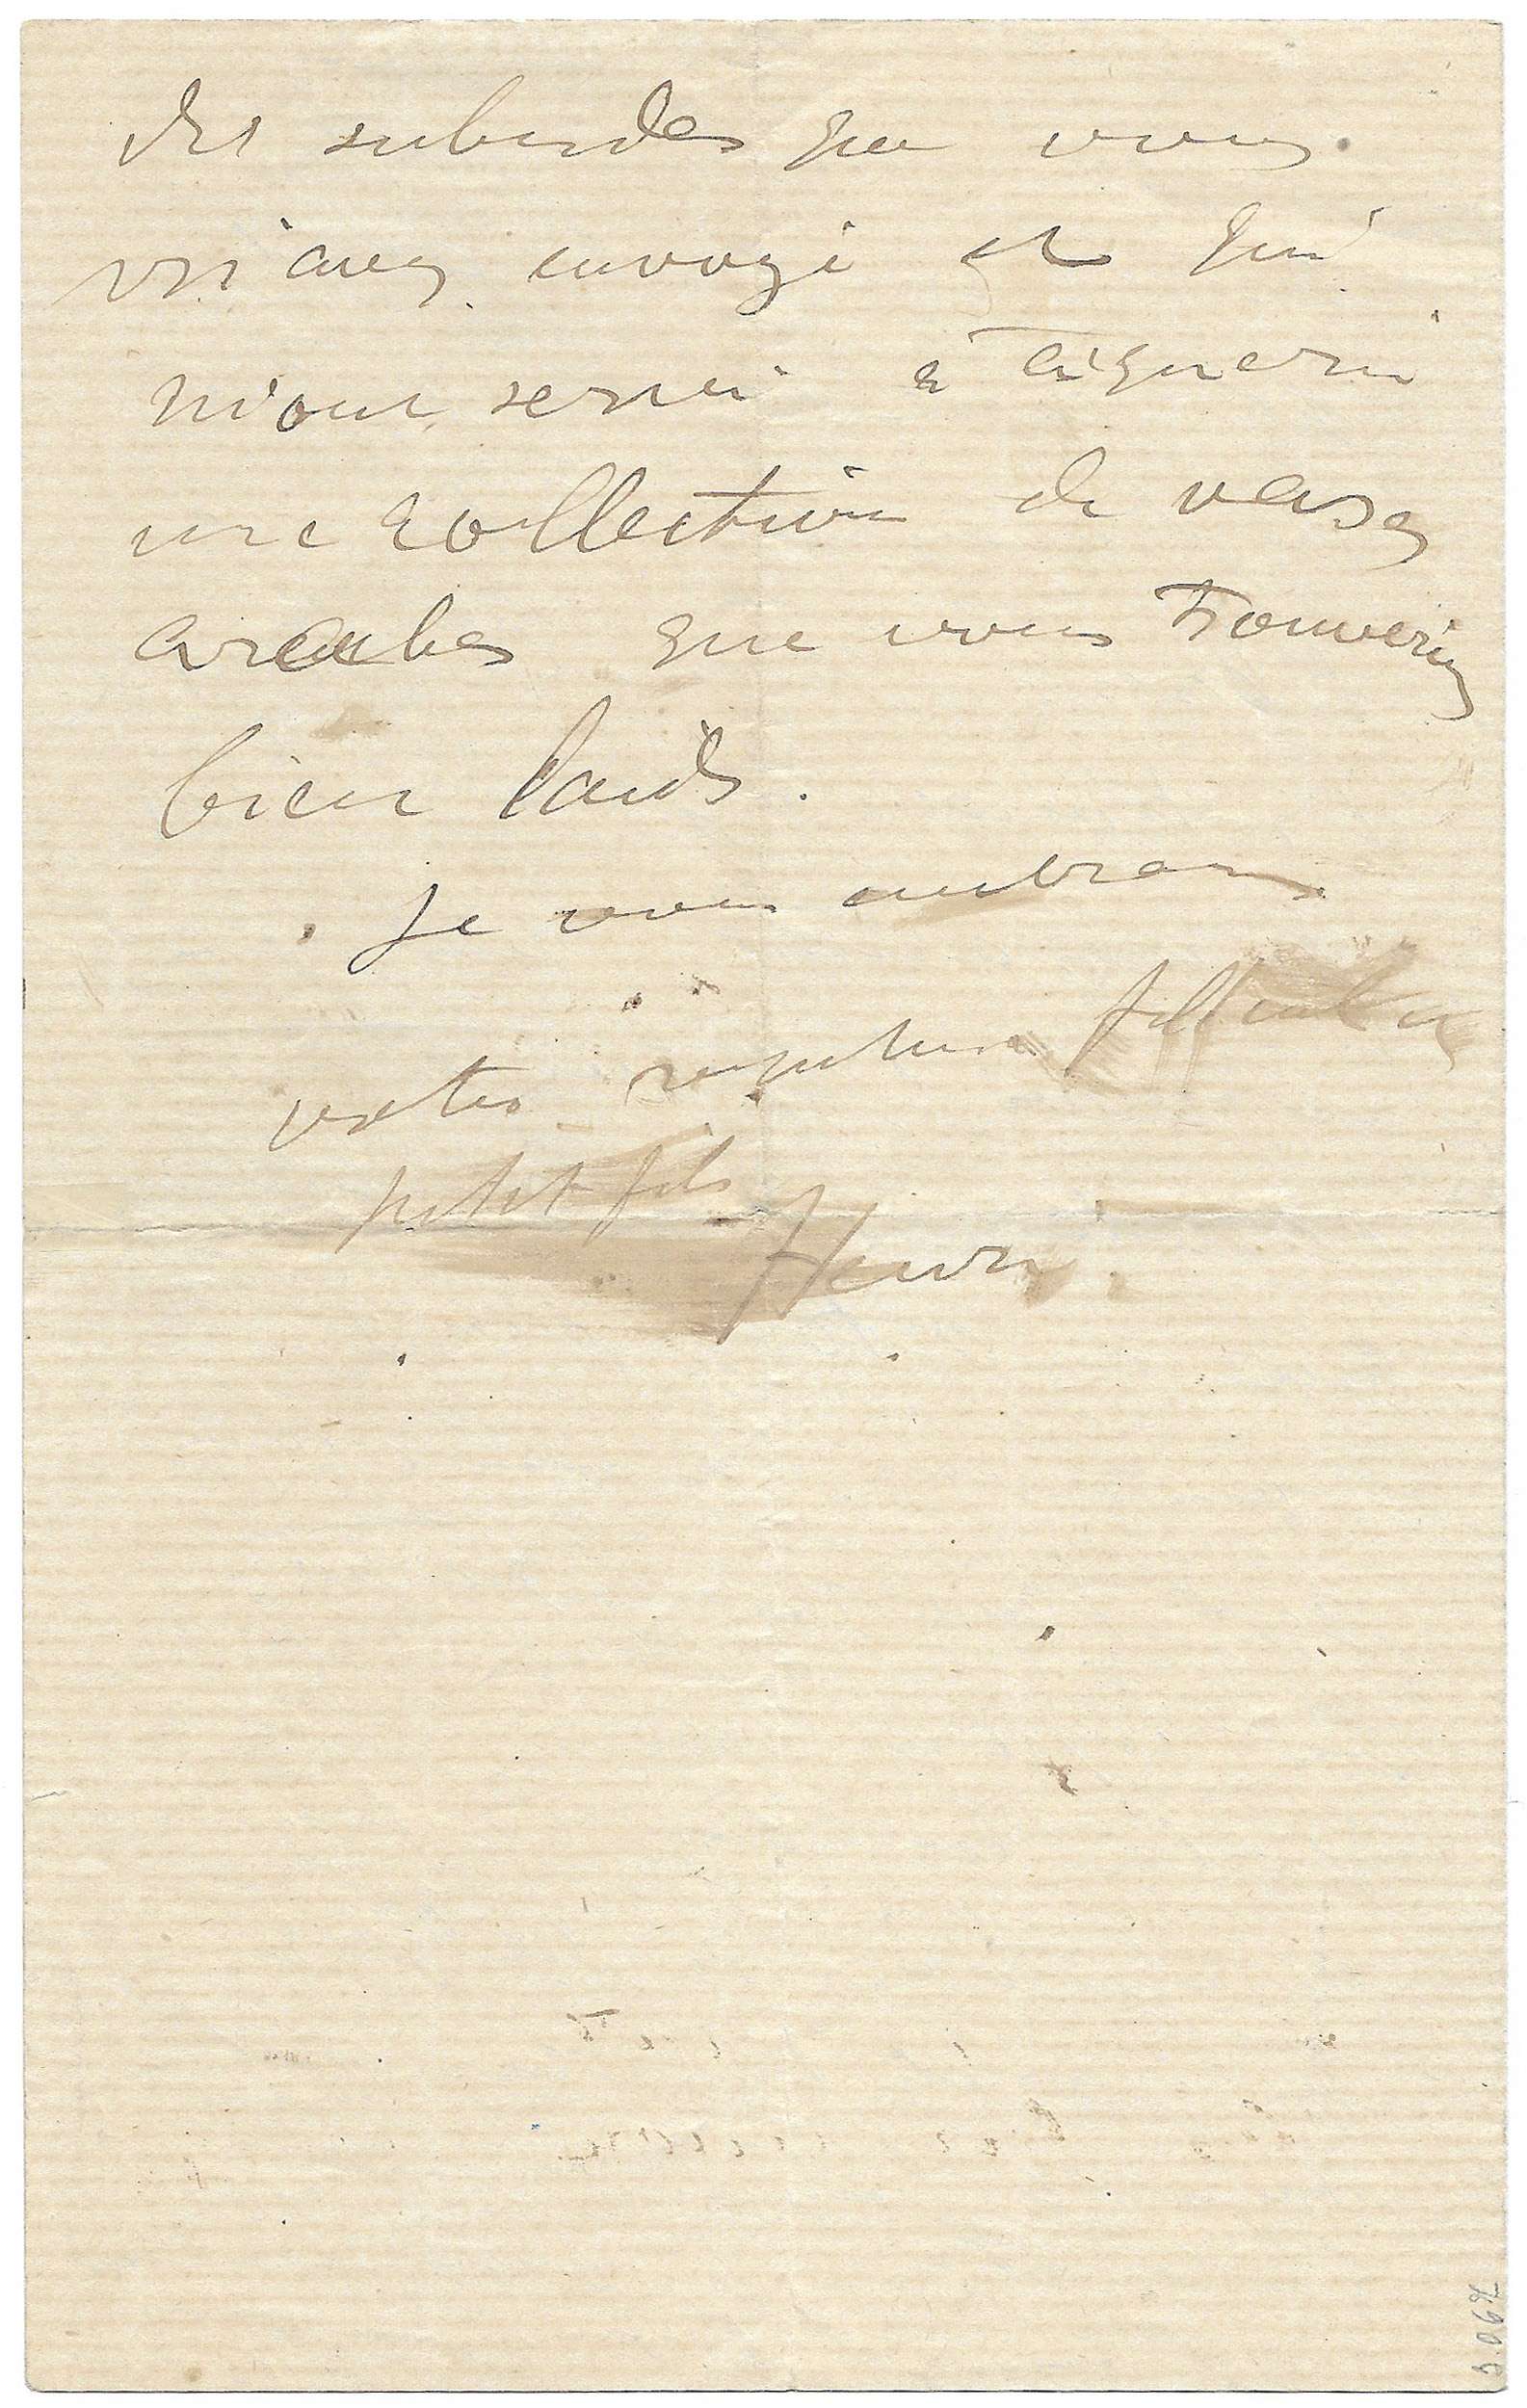 des subsides que vous
m'avez envoyé et qui
m'ont servi à acquérir
une collection de vases
arabes que vous trouveriez
bien laids.
Je vous embrasse
votre respectueux filleul et
petit fils
Henri.